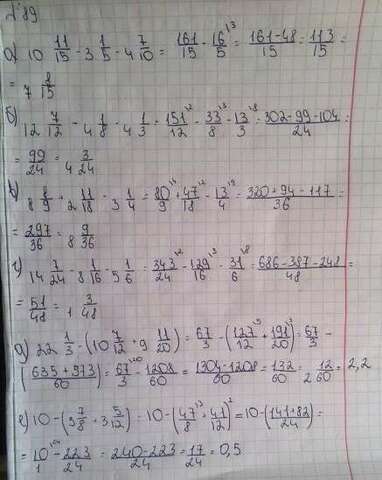 № 89
а) 10 11/15 - 3 1/5 - 4 7/10 = 161/15 - 16/5 ^3 = 161-48/15 = 113/15 =
= 7 8/15
б) 12 7/12 - 4 1/8 - 4 1/3 = 151/12 ^2 - 33/8 ^3 - 13/3 ^8 = 302-99-104/24 =
= 99/24 = 4 3/24
8 8/9 + 2 11/18 - 3 1/4 = 80/9 ^4 + 47/18 ^2 - 13/4 ^9 = 320+94-117/36 =
= 297/36 = 8 9/36
г) 14 7/24 - 8 1/16 - 5 1/6 = 343/24 ^2 - 129/16 ^3 - 31/6 ^8 = 686-387-248/48 =
= 51/48 = 1 3/48
д) 22 1/3 - (10 7/12 + 9 11/20) = 67/3 - (127/12 ^5 + 191/20 ^3) = 67/3 -
(635+573/60) = 67/3 ^20 - 1208/60 = 1304-1208/60 = 132/60 = 2 12/60 = 2,2
е) 10 - (5 7/8 + 3 5/12) = 10 - (47/8 ^3 + 41/12)^2 = 10 - (141+82/24) =
= 10/1 ^24 - 223/24 = 240-223/24 = 17/24 = 0,5